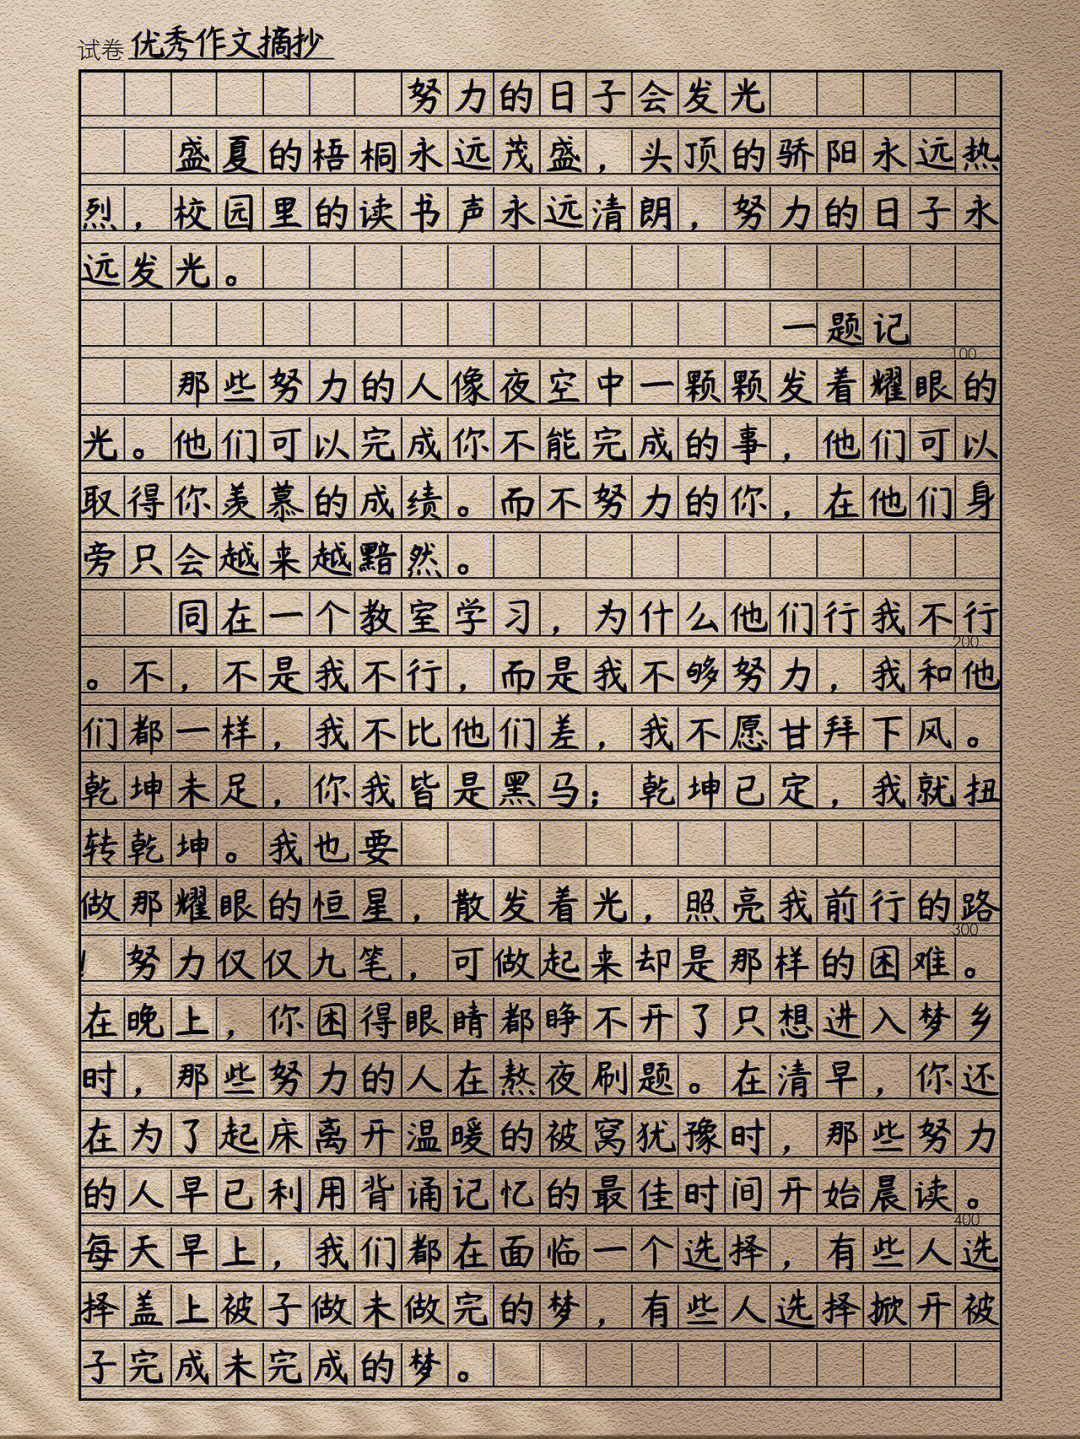 试卷 优秀作文摘抄
努力的日子会发光
盛夏的梧桐永远茂盛，头顶的骄阳永远热
烈，校园里的读书声永远清朗，努力的日子永
远发光。
一题记
100
那些努力的人像夜空中一颗颗发着耀眼的
光。他们可以完成你不能完成的事，他们可以
取得你羡慕的成绩。而不努力的你，在他们身
旁只会越来越黯然。
同在一个教室学习，为什么他们行我不行
200
。不，不是我不行，而是我不够努力，我和他
们都一样，我不比他们差，我不愿甘拜下风。
乾坤未足，你我皆是黑马；乾坤已定，我就扭
转乾坤。我也要
做那耀眼的恒星，散发着光，照亮我前行的路
300
！努力仅仅九笔，可做起来却是那样的困难。
在晚上，你困得眼睛都睁不开了只想进入梦乡
时，那些努力的人在熬夜刷题。在清早，你还
在为了起床离开温暖的被窝犹豫时，那些努力
的人早已利用背诵记忆的最佳时间开始晨读。
400
每天早上，我们都在面临一个选择，有些人选
择盖上被子做未做完的梦，有些人选择掀开被
子完成未完成的梦。